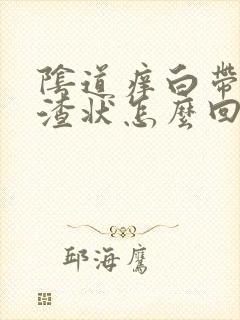 陰道痒白帶
渣狀怎麼回
邱海鷹